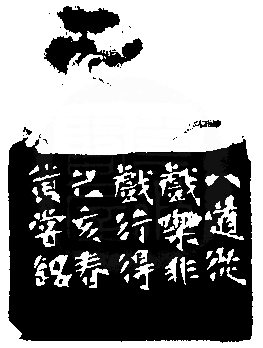 入道從
戲樂非
戲行得
己亥春
黃嘗銘